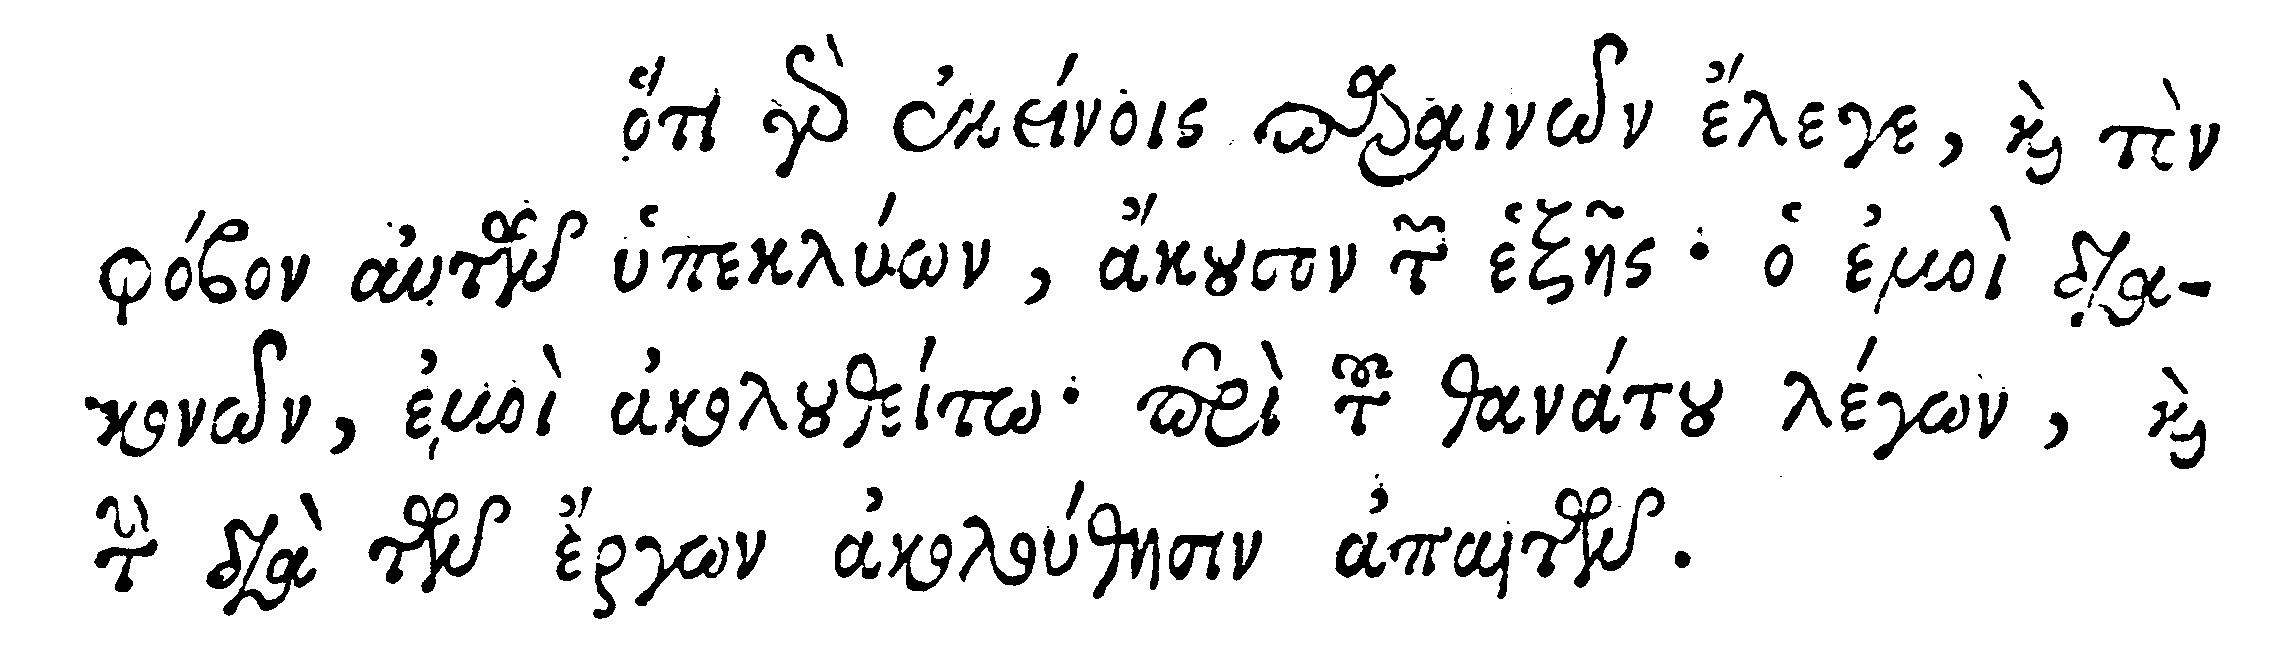 ὅτι γὰρ ἐκείνοις παραινῶν ἔλεγε, καὶ τὸν
φόβον αὐτῶν ὑπεκλύων, ἄκουσον τῶν ἑξῆς· ὁ ἐμοὶ δια-
κονῶν, ἐμοὶ ἀκολουθείτω· περὶ τοῦ θανάτου λέγων, καὶ
τὴν διὰ τῶν ἔργων ἀκολούθησιν ἀπαιτῶν.